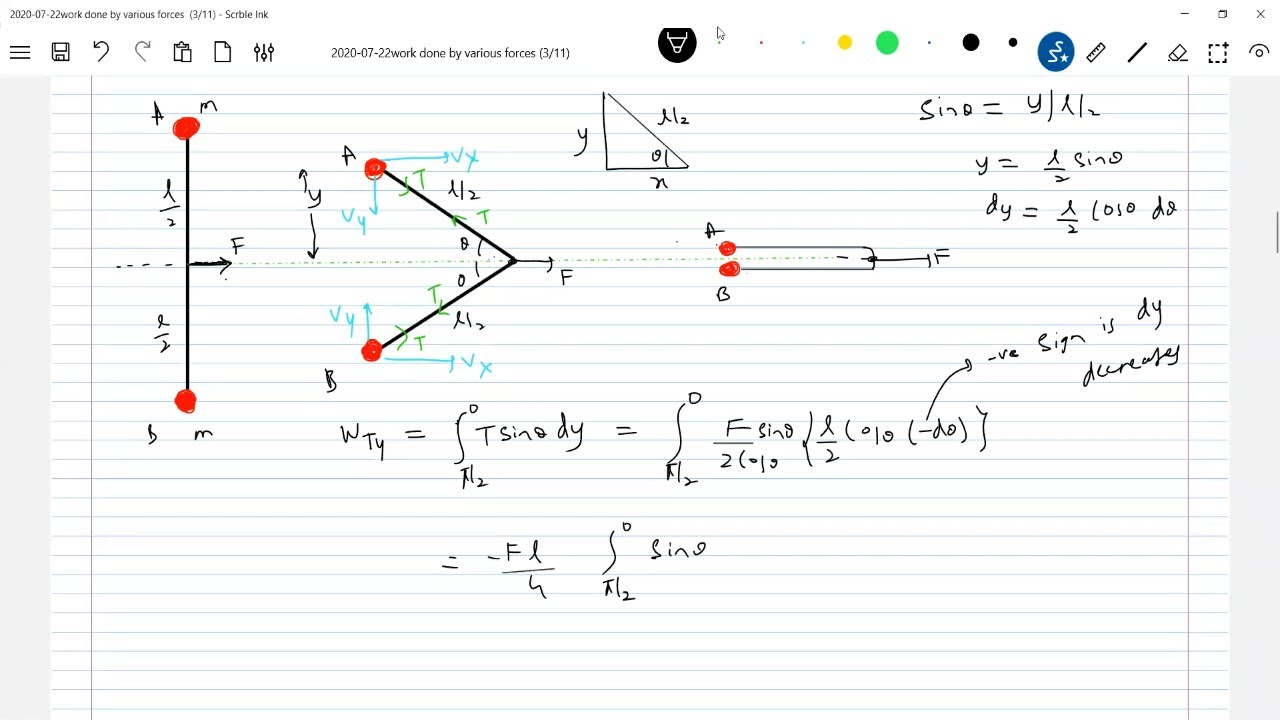 2020-07-22work done by various forces (3/11) - Scrble Ink
2020-07-22work done by various forces (3/11)
A m
l/2
F
l/2
B m
A
Vx
Vy
y
T
l/2
T
θ
θ
F
T
l/2
T
Vy
Vx
B
y
l/2
θ
x
A
B
F
Sinθ = y/l/2
y = l/2 sinθ
dy = l/2 Cosθ dθ
-ve sign is dy
decreases
W_Ty = ∫_π/2^0 T sinθ dy = ∫_π/2^0 F sinθ/2Cosθ { l/2 Cosθ (-dθ) }
= -Fl/4 ∫_π/2^0 Sinθ